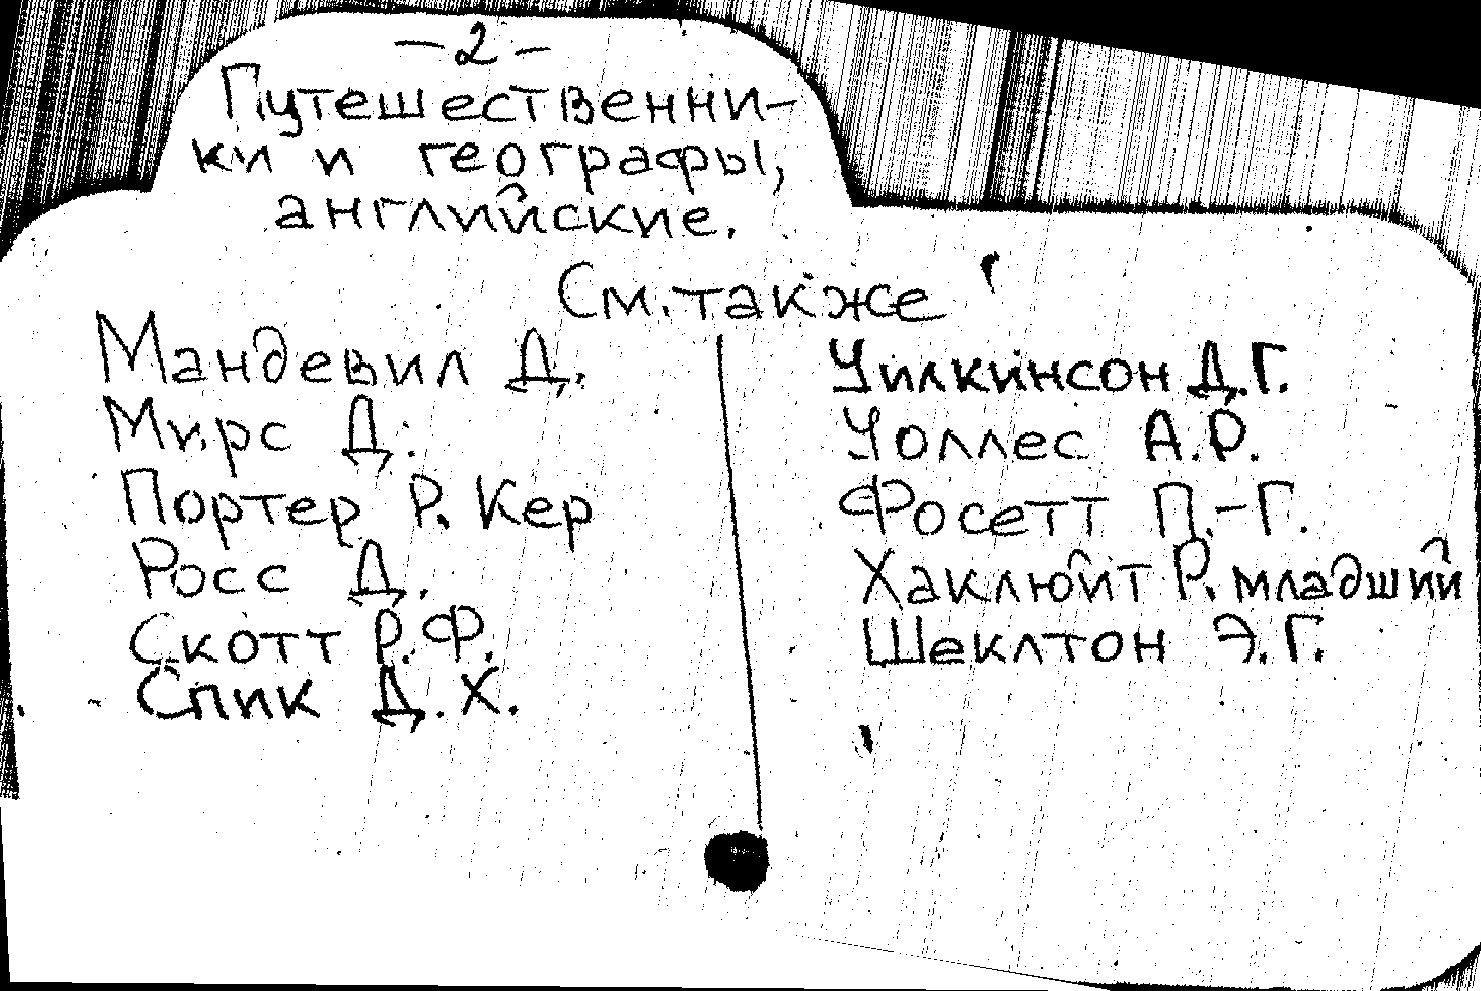 -2-
Путешественни-
ки и географы,
английские.
См. также
Мандевил Д.
Мирс Д.
Портер Р. Кер
Росс Д.
Скотт Р.Ф.
Спик Д.Х.
Уилкинсон Д.Г.
Уоллес А.Р.
Фосетт П.-Г.
Хаклюйт Р. младший
Шеклтон Э.Г.